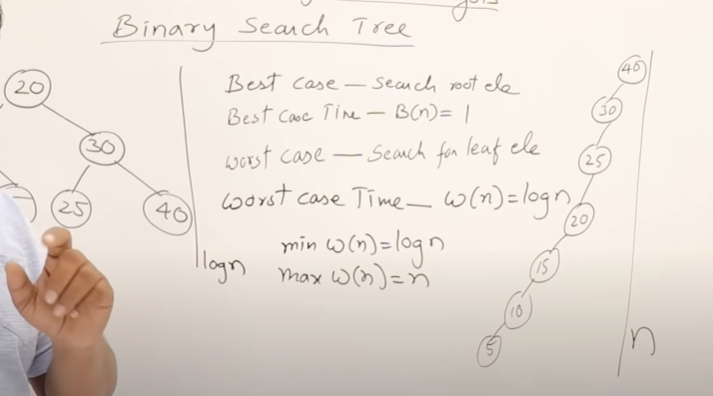 Binary Search Tree
20
30
25
40
Best case — search root ele
Best case Time — B(n) = 1
worst case — search for leaf ele
worst case Time — w(n) = log n
min w(n) = log n
max w(n) = n
log n
40
30
25
20
15
10
5
n